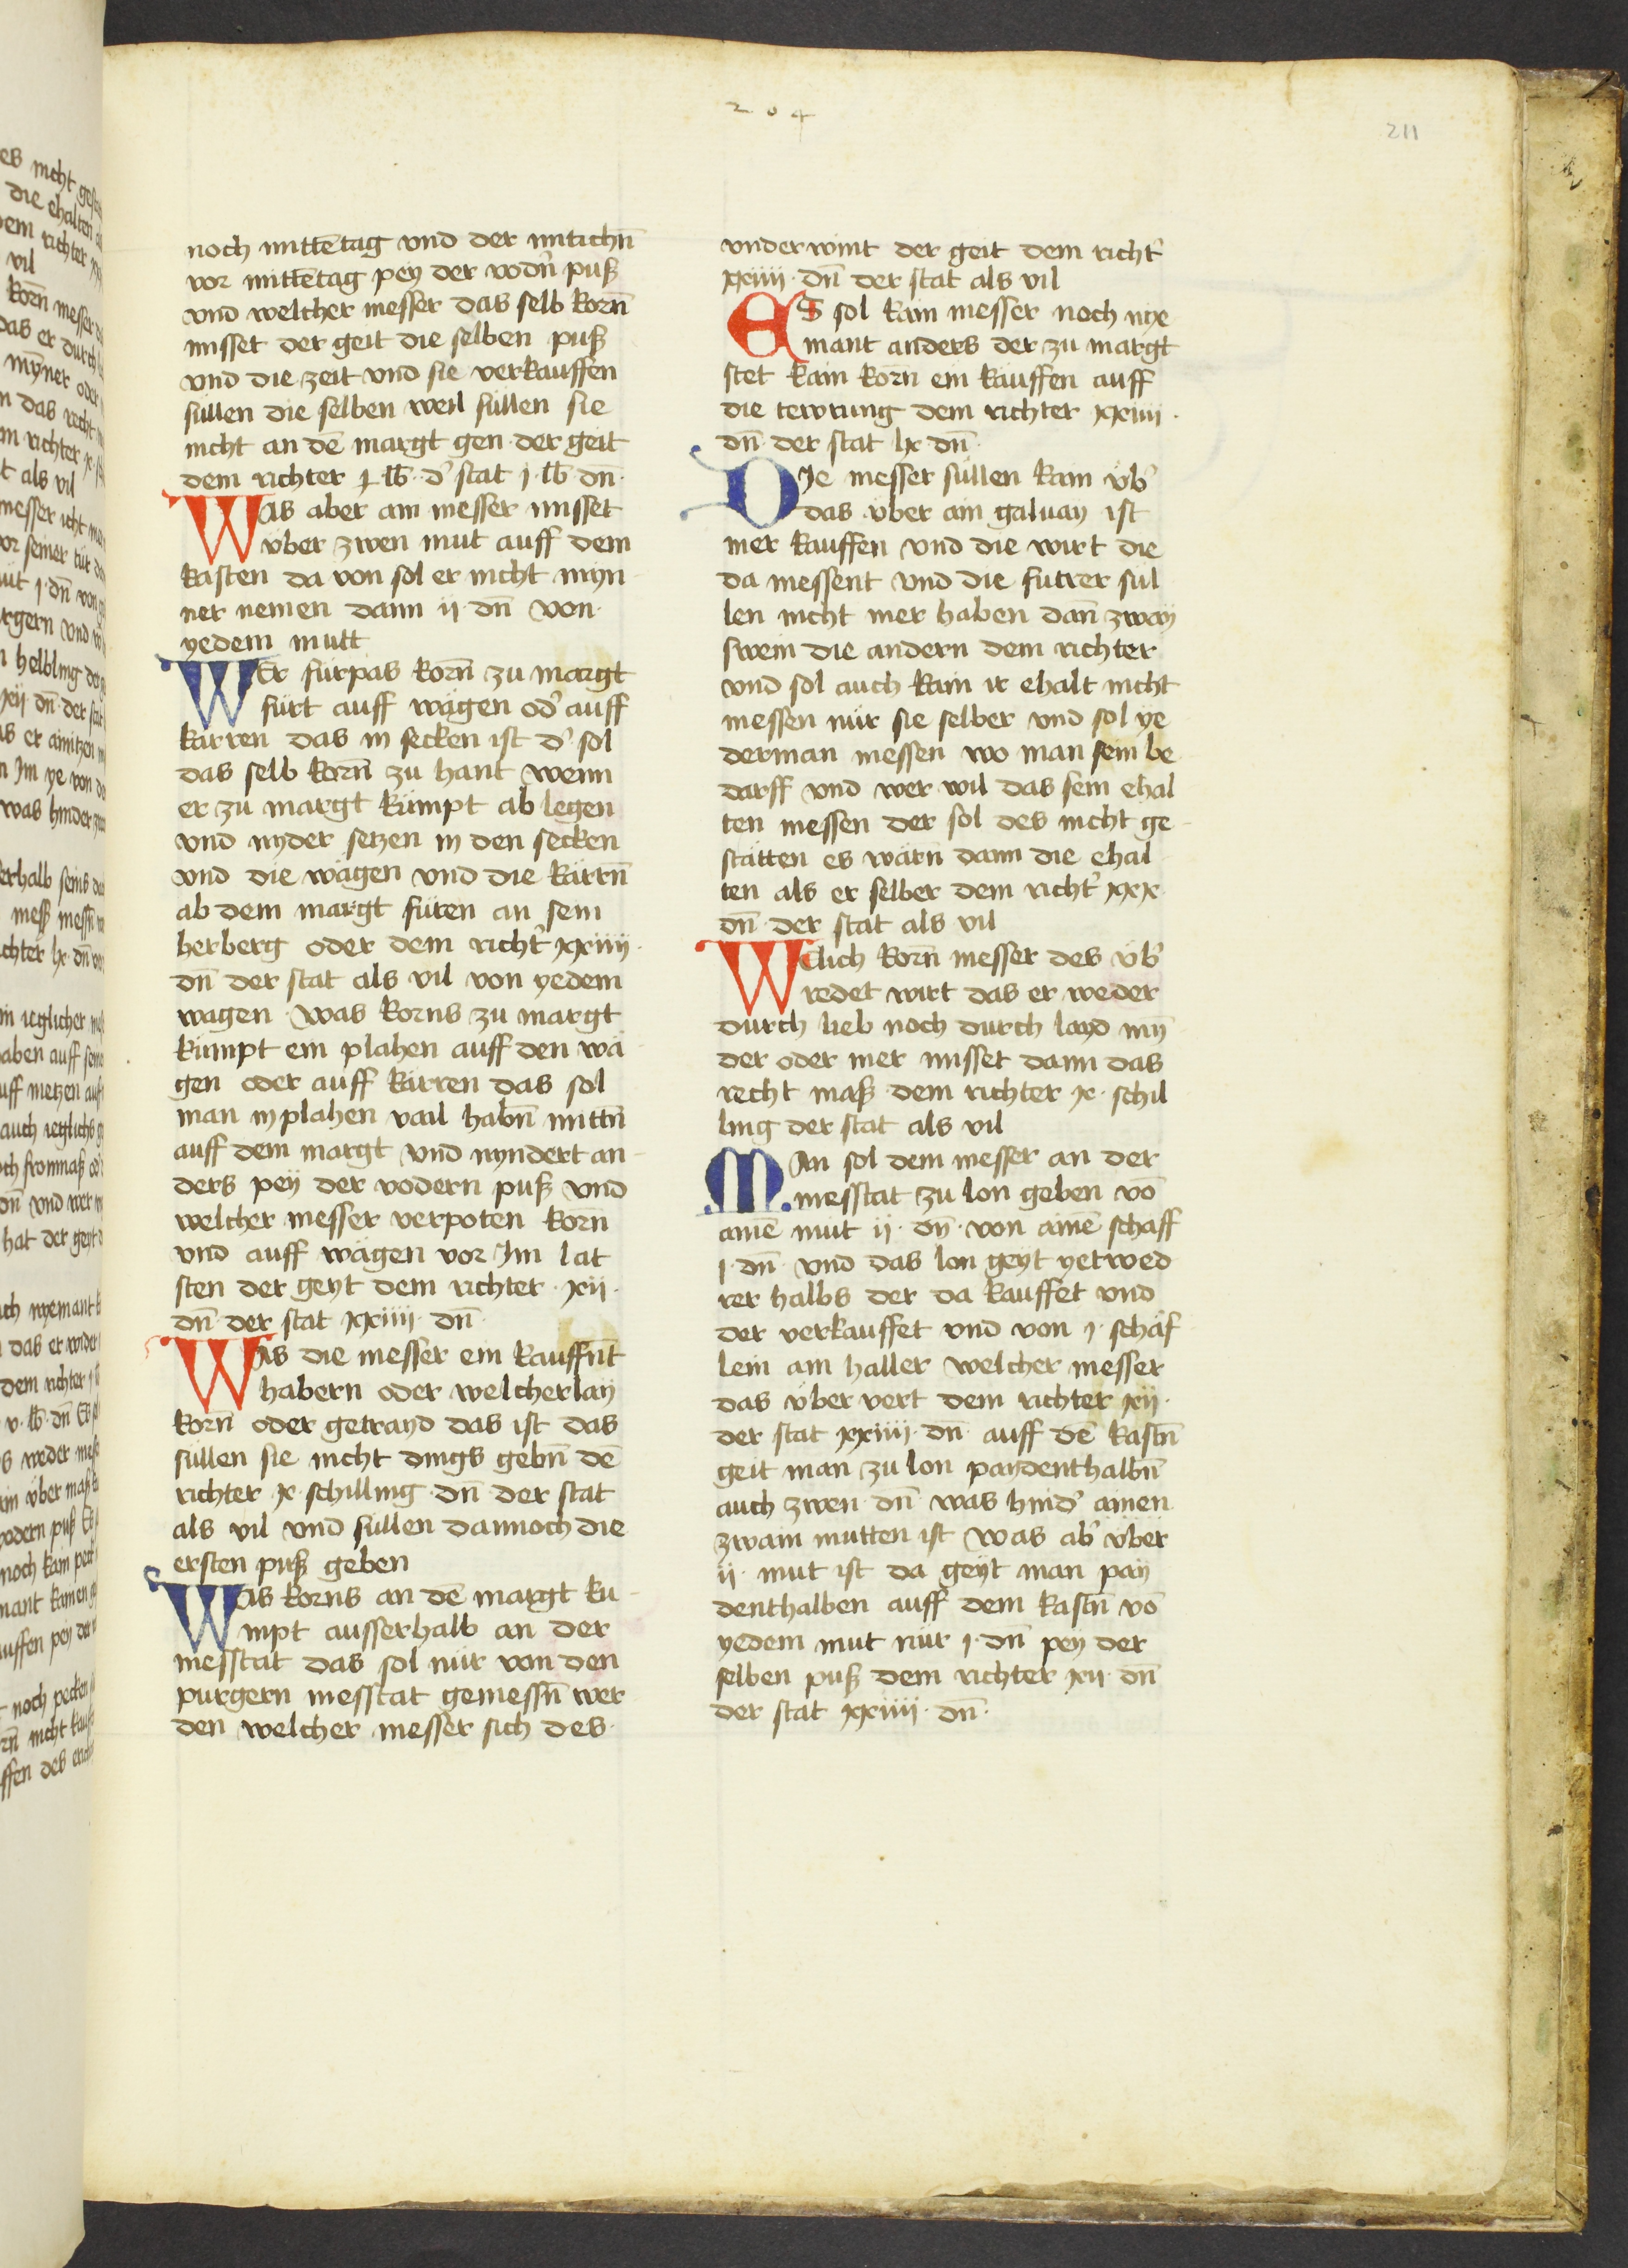 204
211
noch mittētag vnd der mitichn̄
vor mittētag pey der vodn̄ puß
vnd welcher messer das selb korn̄
misset der geit die selben puß
vnd die zeit vnd sie verkauffen
süllen die selben weil süllen sie
nicht an dē margt gen der geit
dem richter j lb̄ d' stat j lb̄ dn̄
Was aber ain messer misset
vber zwen mut auff dem
kasten da von sol er nicht myn
ner nemen dann ij dn̄ von
yedem mutt
WEr fürpas korn̄ zu margt
fürt auff wägen od' auff
kärren das in secken ist d' sol
das selb korn̄ zu hant wenn
er zu margt kümpt ab legen
vnd nyder setzen in den secken
vnd die wägen vnd die kärrn̄
ab dem margt füren an sein
herberg oder dem richt' xxiiij
dn̄ der stat als vil von yedem
wagen Was korns zu margt
kümpt ein plahen auff den wä
gen oder auff kärren das sol
man in plahen vail habn̄ mittn̄
auff dem margt vnd nyndert an
ders pey der vodern puß vnd
welcher messer verpoten korn̄
vnd auff wägen vor Im lat
sten der geyt dem richter xij
dn̄ der stat xxiiij dn̄
Was die messer ein kauffn̄t
habern oder welcherlay
korn̄ oder getrayd das ist das
süllen sie nicht dings gebn̄ dē
richter x schilling dn̄ der stat
als vil vnd süllen dannoch die
ersten puß geben
Was korns an dē margt ku
mpt ausserhalb an der
messtat das sol nür von den
purgern messtat gemessn̄ wer
den welcher messer sich des
vnderwint der geit dem richt'
xxiiij dn̄ der stat als vil
ES sol kain messer noch nye
mant anders der zu margt
stet kain korn̄ ein kauffen auff
die tewrung dem richter xxiiij
dn̄ der stat lx dn̄
DIe messer süllen kain vb'
das vber ain galuay ist
mer kauffen vnd die wirt die
da messent vnd die futrer sul
len nicht mer haben dan̄ zway
swein die andern dem richter
vnd sol auch kain ir ehalt nicht
messen nür sie selber vnd sol ye
derman messen wo man sein be
darff vnd wer wil das sein ehal
ten messen der sol des nicht ge
stätten es wärn dann die ehal
ten als er selber dem richt' xxx
dn̄ der stat als vil
Welich korn̄ messer des vb'
redet wirt das er weder
durch lieb noch durch layd mȳ
der oder mer misset dann das
recht maß dem richter x schil
ling der stat als vil
MAn sol dem messer an der
messtat zu lon geben vō
ainē mut ij dn̄ von ainē schaff
j dn̄ vnd das lon geyt yetwed
rer halbs der da kauffet vnd
der verkauffet vnd von j schäf
lein ain haller welcher messer
das vber vert dem richter xij
der stat xxiiij dn̄ auff dē kastn̄
geit man zu lon paydenthalbn̄
auch zwen dn̄ was hind' ainen
zwain mutten ist Was ab' vber
ij mut ist da geyt man pay
denthalben auff dem kastn̄ vō
yedem mut nür j dn̄ pey der
selben puß dem richter xij dn̄
der stat xxiiij dn̄